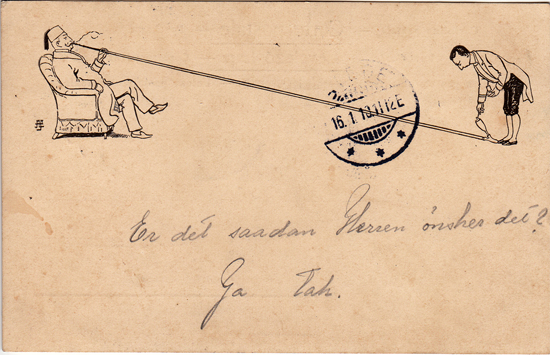 16.1
12E
Er det saadan Herren önsker det?
Ja Tak.